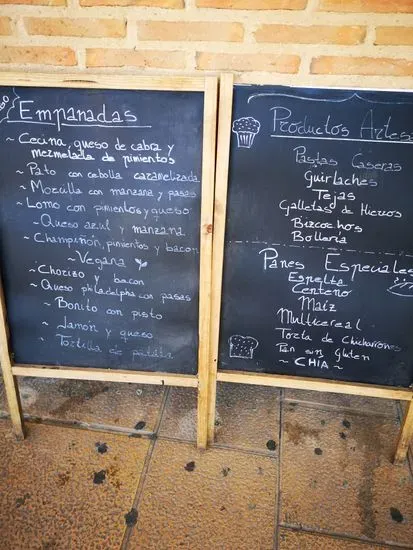 Empanadas
~ Cecina, queso de cabra y
mezmelada de pimientos
~ Pato con cebolla caramelizada
~ Morcilla con manzana y pasas
~ Lomo con pimientos y queso
~ Queso azul y manzana
~ Champiñón, pimientos y bacon
~ Vegana
~ Chorizo y bacon
~ Queso philadelphia con pasas
~ Bonito con pisto
~ Jamón y queso
~ Tortilla de patata
Productos Artes
Pastas Caseras
Guirlaches
Tejas
Galletas de Hierros
Bizcochos
Bollería
Panes Especiales
Espelta
Centeno
Maíz
Multicereal
Torta de Chicharrones
Pan sin Gluten
~ CHIA ~